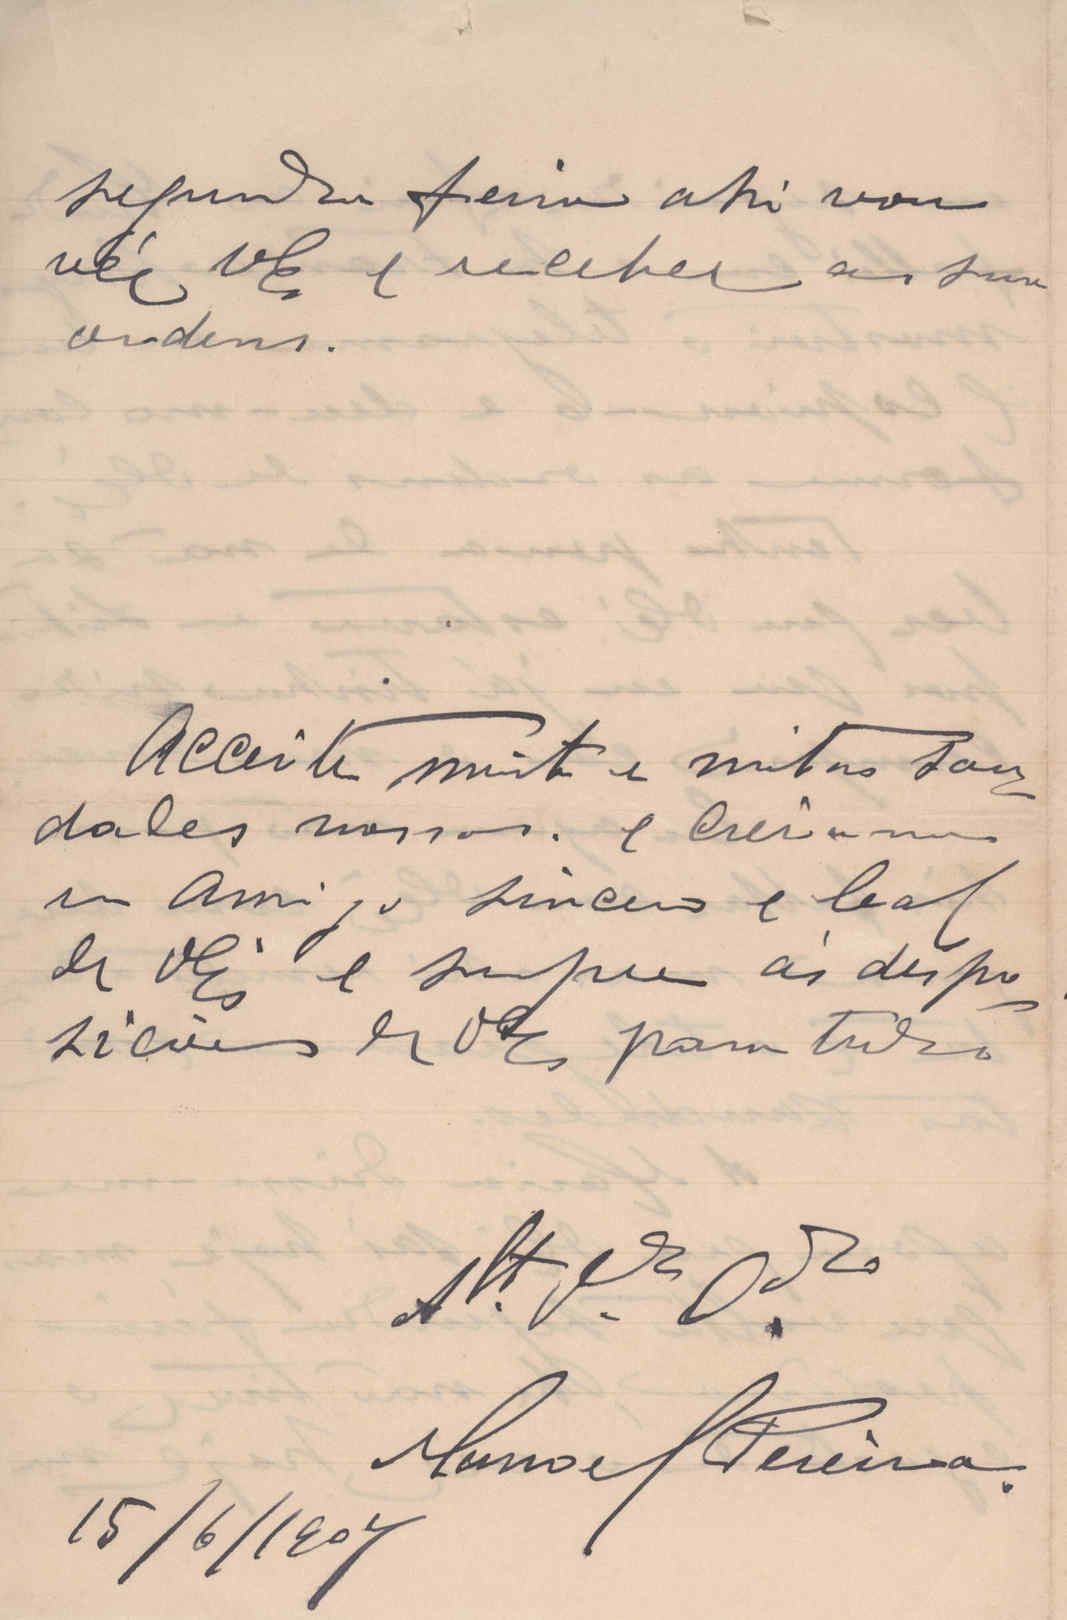 segunda feira ahi vou
vêr VEx e receber as suas
ordens.
Acceite muitas e muitas sau
dades nossos. e creia me
um amigo sincero e leal
de VExs e sempre ás dispo
sicões de VExs para tudo
Att. Vdr Obdo
Manoel Pereira.
15/6/1907